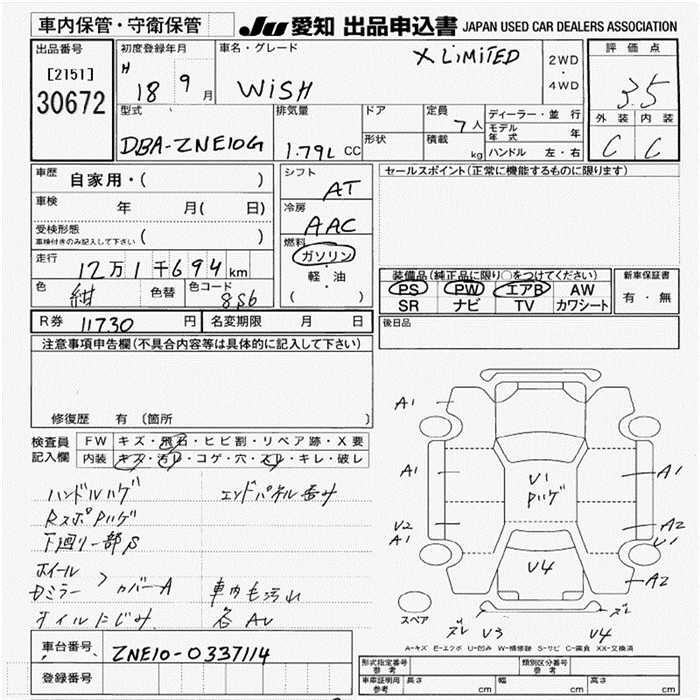 車内保管・守衛保管
JU 愛知 出品申込書 JAPAN USED CAR DEALERS ASSOCIATION
出品番号
[2151]
30672
初度登録年月
H 18 9 月
車名・グレード
X LiMiTED
WiSH
2WD
・
4WD
評価点
3.5
外装 内装
C C
型式
DBA-ZNE10G
排気量
1.79L CC
ドア
形状
定員
7人
積載
kg
ディーラー・並行
モデル年式 年
ハンドル 左・右
車歴 自家用・( )
車検 年 月( 日)
受検形態
車検付きのみ記入して下さい ( )
走行
12万1千694km
色 紺 色替 色コード 8S6
シフト
AT
冷房
AAC
燃料
ガソリン
・
軽・油
( )
セールスポイント(正常に機能するものに限ります)
装備品(純正品に限り○をつけてください)
PS PW エアB AW
SR ナビ TV カワシート
新車保証書
有・無
R券 11730 円 名変期限 月 日
後日品
注意事項申告欄(不具合内容等は具体的に記入して下さい)
修復歴 有 (箇所 )
検査員記入欄
FW キズ・飛石・ヒビ割・リペア跡・X要
内装 キズ・汚れ・コゲ・穴・スレ・キレ・破レ
ハンドルハゲ
エンドパネル歪み
RスポPハゲ
下廻り一部S
ホイール
Dミラー > カバーA
車内も汚れ
オイルにじみ
各AU
A1
A1
U2
A1
U1
Pハゲ
U4
A1
A2
U1
A2
スペア
ズレ U3
ズレ
U4
A-キズ E-エクボ U-凹み W-補修跡 S-サビ C-腐食 XX-交換済
車台番号 ZNE10-0337114
登録番号
型式指定番号 参考
類別区分番号 参考
車庫証明用 参考 長さ cm 幅 cm 高さ cm